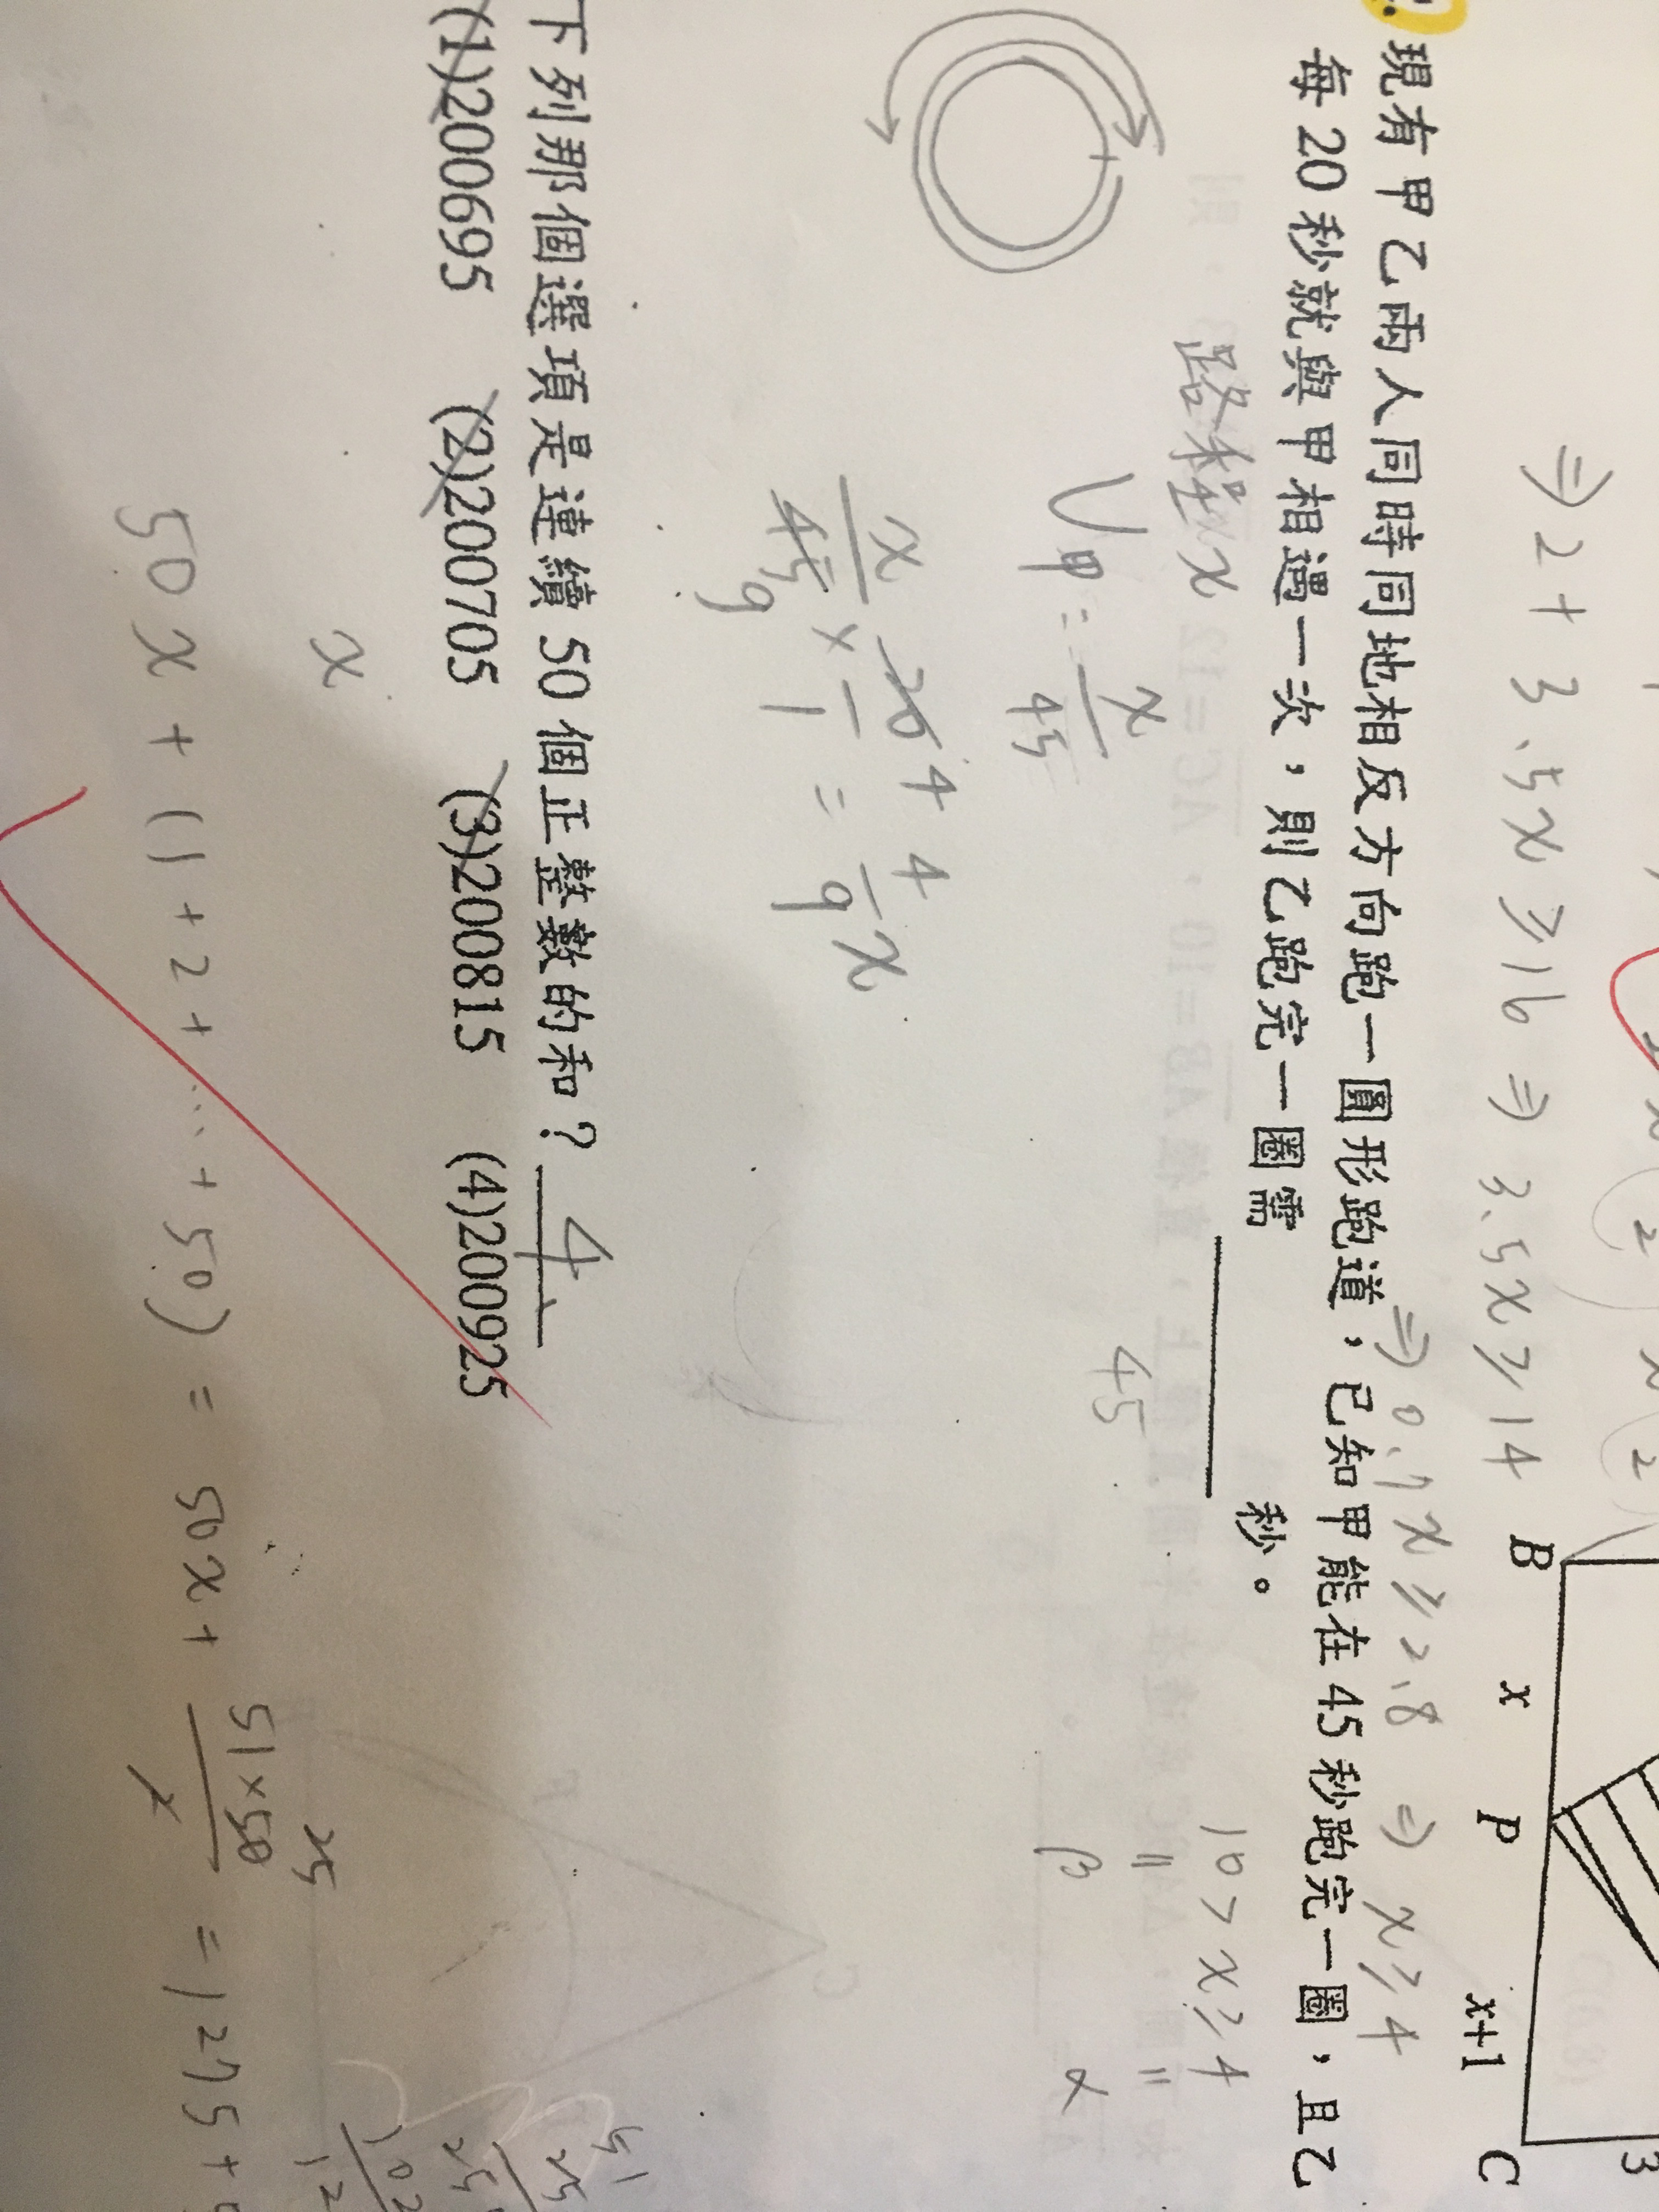 ⇒ 2+3.5x ≥ 16 ⇒ 3.5x ≥ 14
B x P x+1 C
3
⇒ 0.7x ≥ 2.8 ⇒ x ≥ 4
現有甲乙兩人同時同地相反方向跑一圓形跑道，已知甲能在 45 秒跑完一圈，且乙
每 20 秒就與甲相遇一次，則乙跑完一圈需 秒。
10 > x ≥ 4
路程 x
45
V甲 = x/45
x/45 × 20/1 = 4/9 x
4
9
下列那個選項是連續 50 個正整數的和？ 4
(1)200695 (2)200705 (3)200815 (4)200925
x
50x + (1+2+...+50) = 50x + 51×50/2 = 1275+
25
51
25